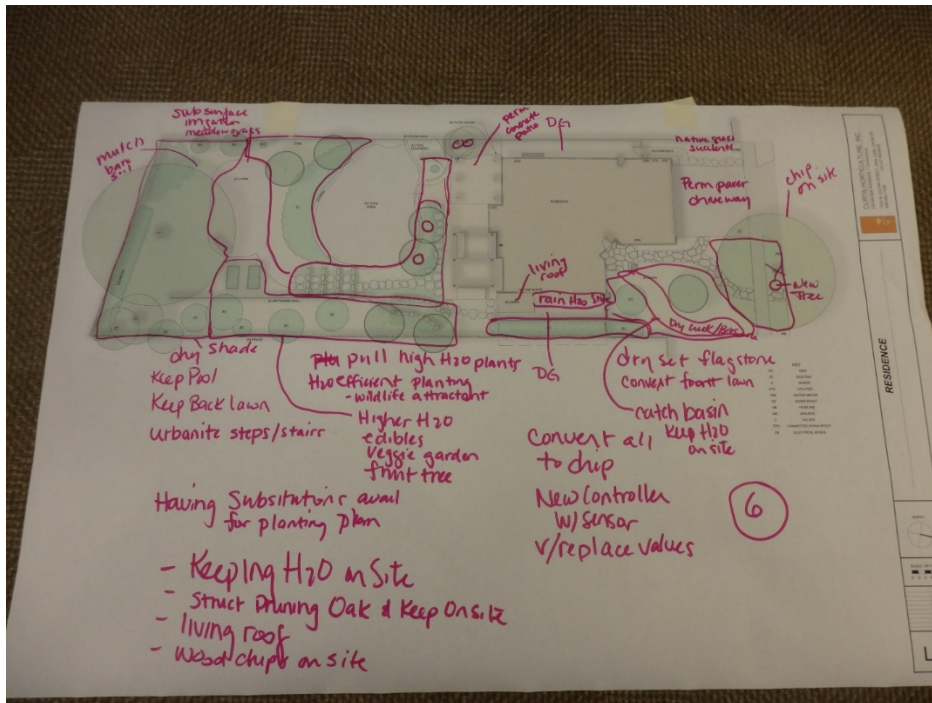 sub surface
irrigation
meadow grass
mulch
bare
soil
perm
concrete
patio
DG
native grass
succulents
Perm paver
driveway
chip
on site
New
tree
living
roof
rain H2O
Dry Creek/
DG
dry shade
Keep Pool
Keep Back lawn
Urbanite steps/stairs
pull high H2O plants
H2O efficient planting
- wildlife attractant
Higher H2O
edibles
veggie garden
fruit tree
dry set flagstone
Convert front lawn
catch basin
Keep H2O
on site
Convert all
to chip
New Controller
w/ sensor
r/replace valves
6
Having Substitutions avail
for planting plan
- Keeping H2O on Site
- Struct Pruning Oak & Keep Onsite
- living roof
- Wood chips on site
CURTIS HORTICULTURE, INC.
RESIDENCE
KEY
L